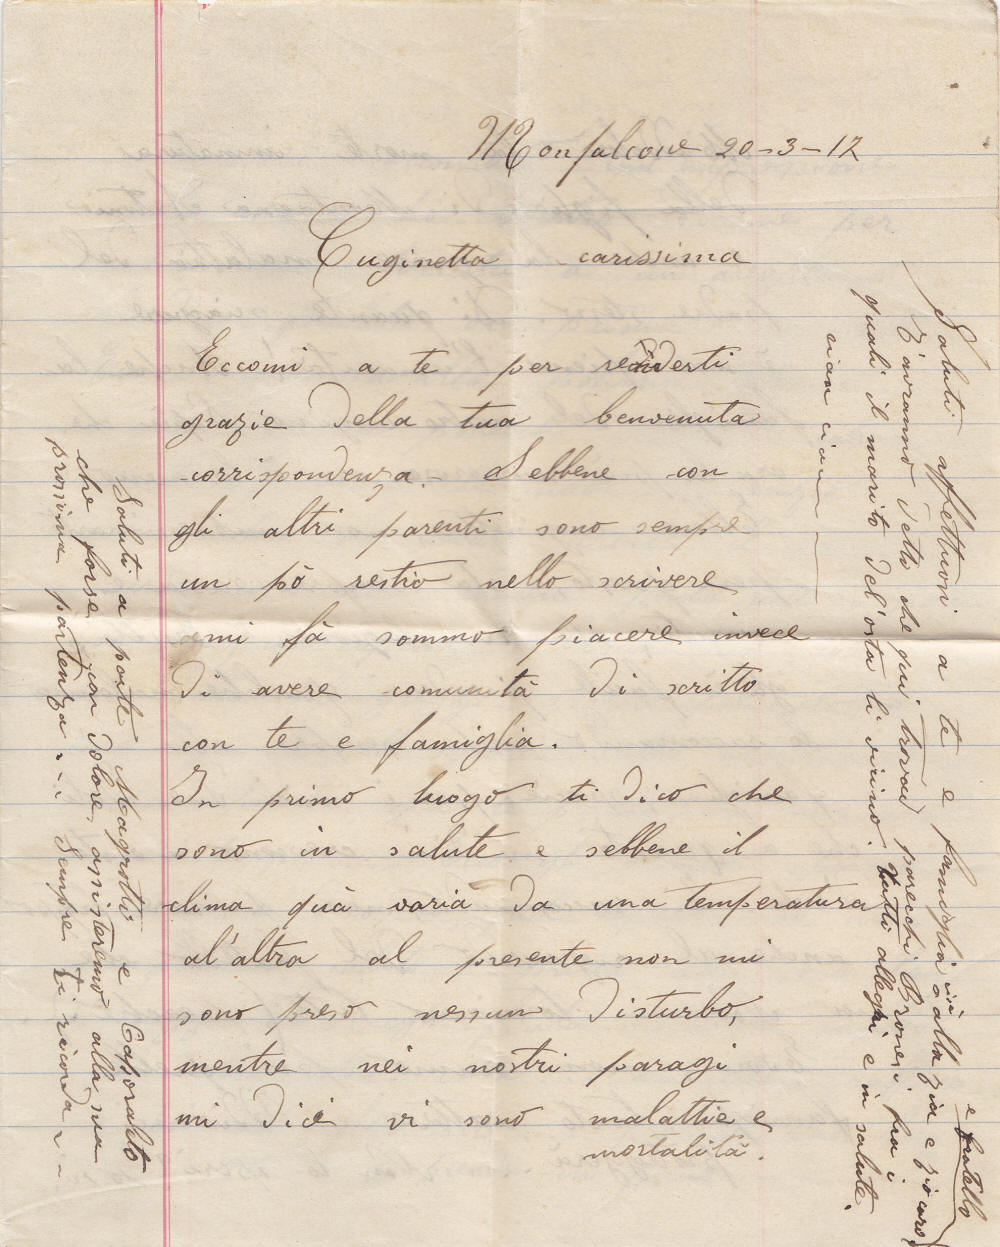 Monfalcone 20-3-12
Cuginetta carissima
Eccomi a te per renderti
grazie della tua benvenuta
corrispondenza. Sebbene con
gli altri parenti sono sempre
un pò restio nello scrivere
mi fà sommo piacere invece
di avere comunità di scritto
con te e famiglia.
In primo luogo ti dico che
sono in salute e sebbene il
clima quà varia da una temperatura
al'altra al presente non mi
sono preso nessun disturbo,
mentre nei nostri paragi
mi dici vi sono malattie e
mortalità.
Saluti affettuosi a te e famiglia alla zia e zio caro,
e fratello
T'avranno detto che qui trovai parecchi Bronesi fra i
quali il marito del'osta li vicino. tutti allegri e in salute.
cian cian
Saluti a parte Magrotti e Casoratto
che forse con dolore, assisteremo alla sua
prossima partenza... Sempre ti ricorda..